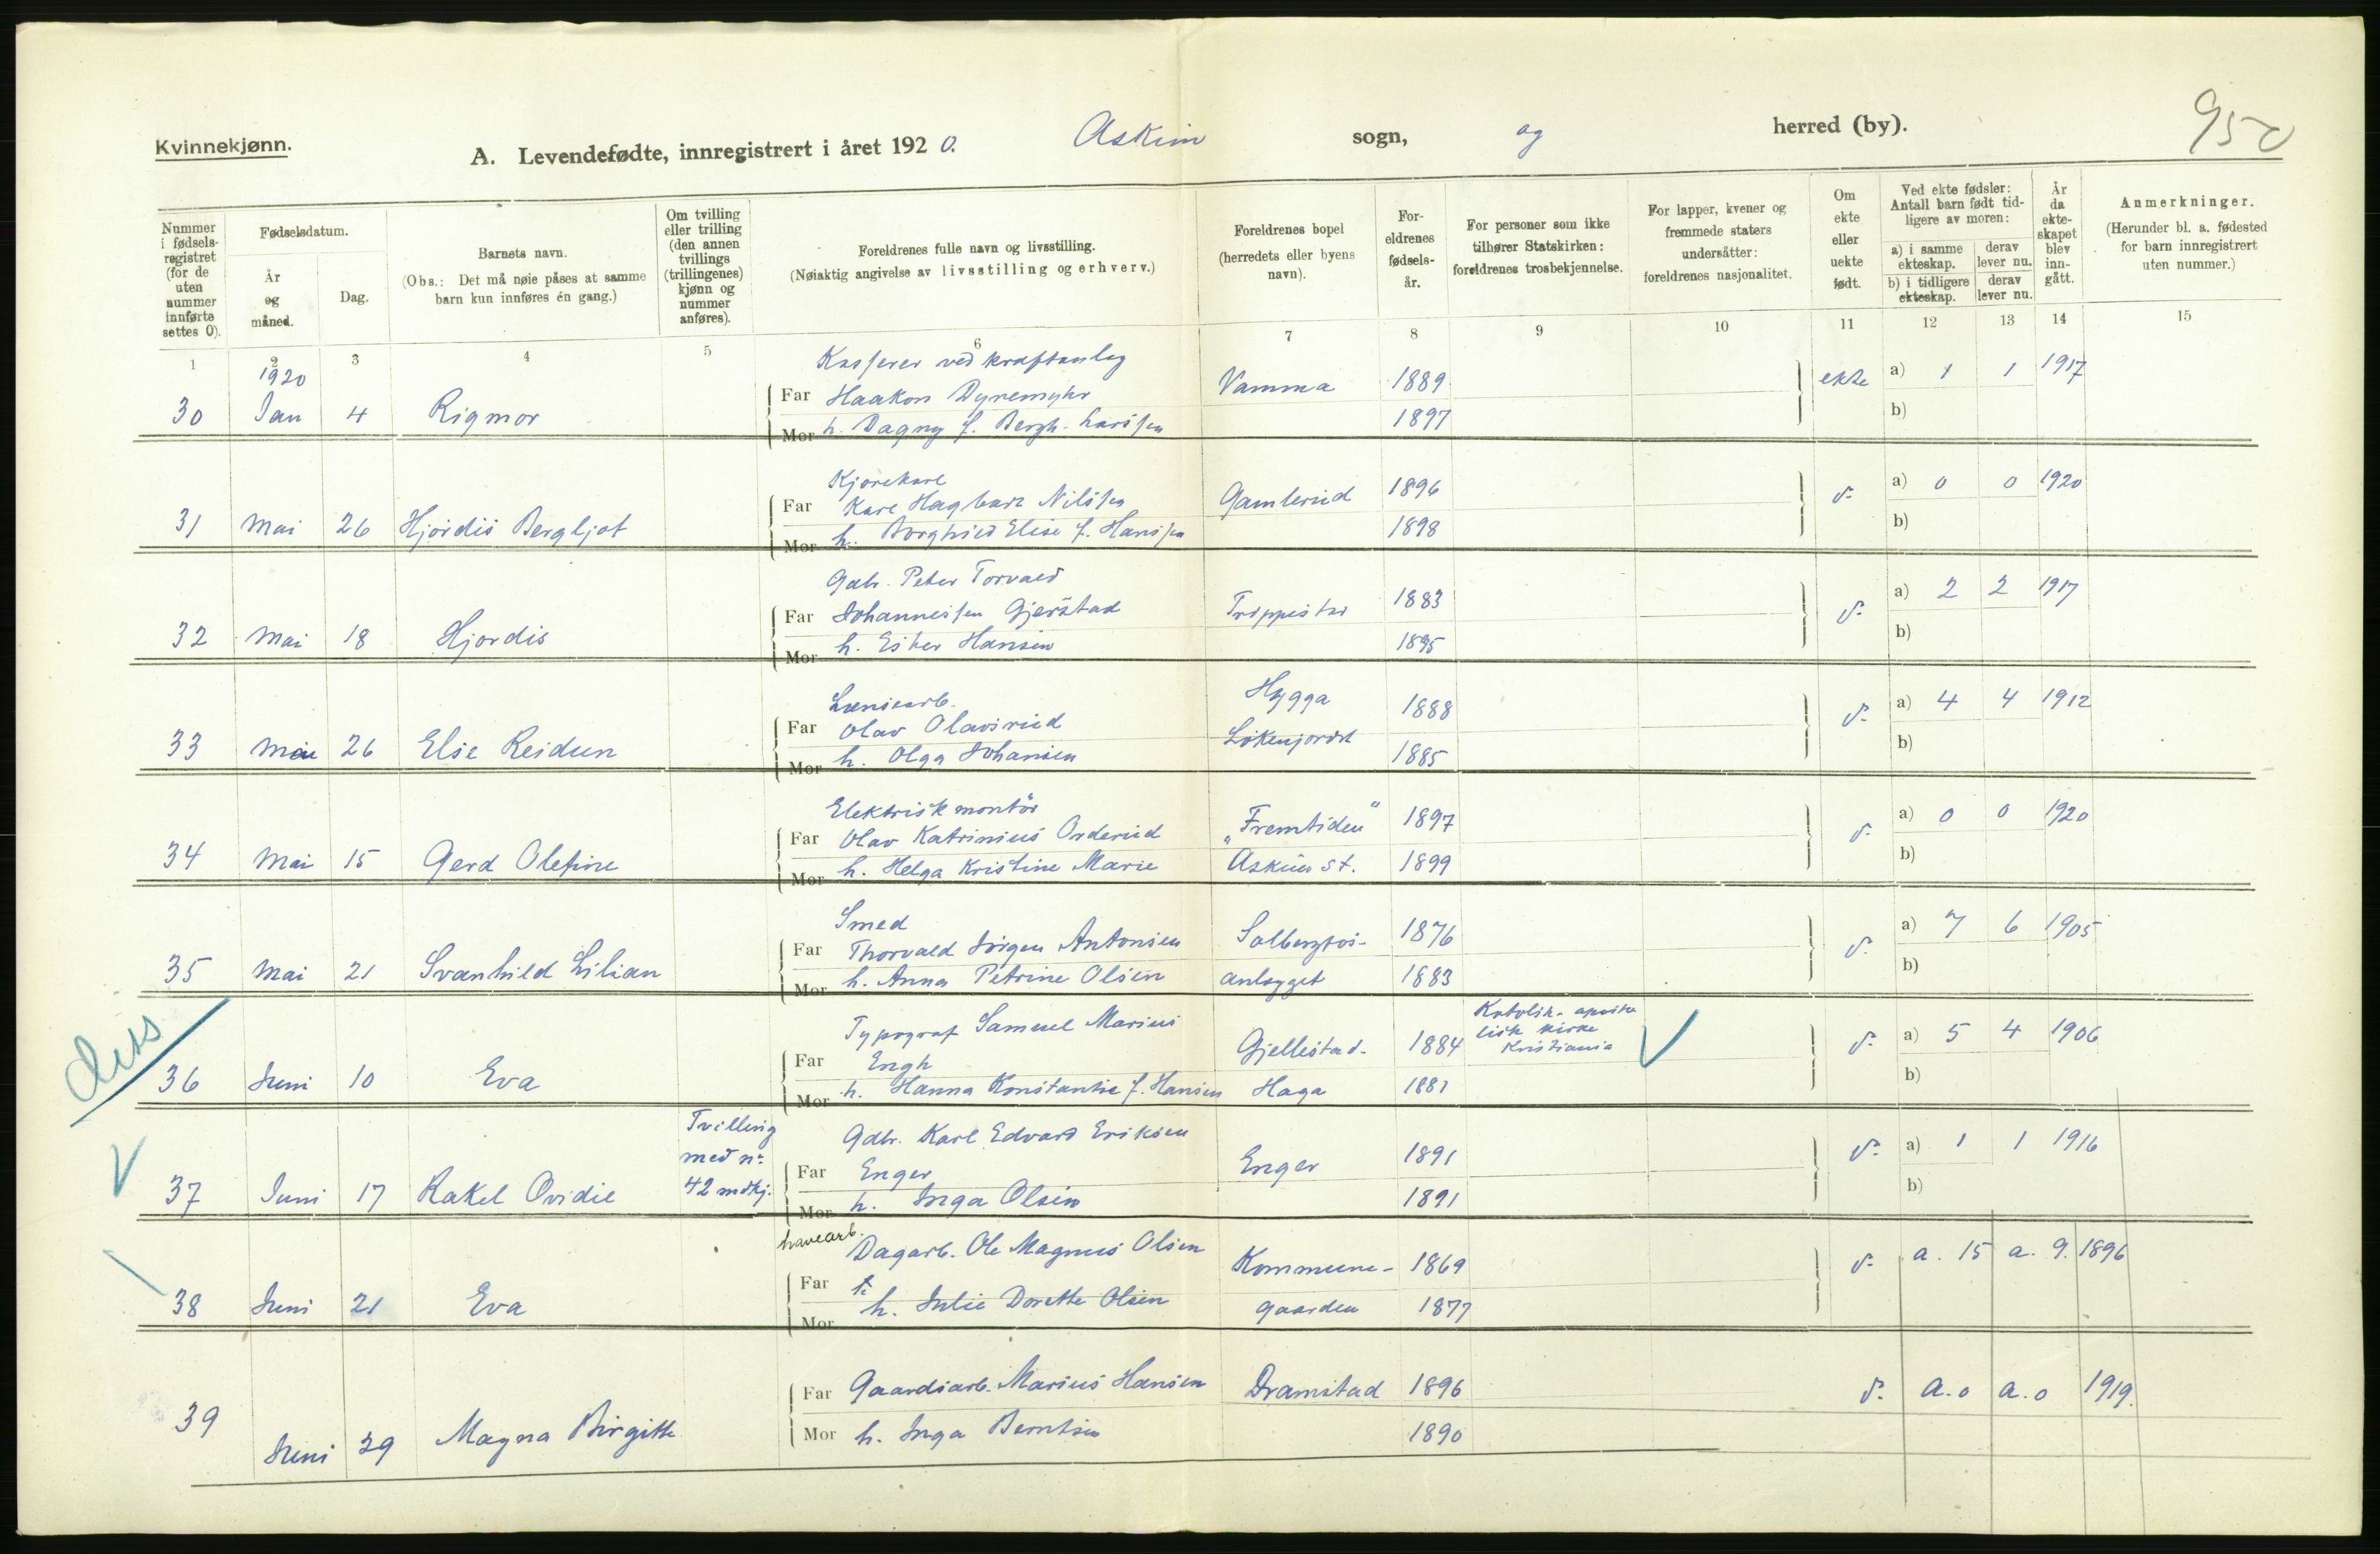 Kvinnekjønn.
A. Levendefødte, innregistrert i året 1920. Askim sogn, og herred (by).
950
Nummer i fødselsregistret (for de uten nummer innførte settes 0).
Fødselsdatum.
År og måned.
Dag.
Barnets navn.
(Obs.: Det må nøie påses at samme barn kun innføres én gang.)
Om tvilling eller trilling (den annen tvillings (trillingenes) kjønn og nummer anføres).
Foreldrenes fulle navn og livsstilling.
(Nøiaktig angivelse av livsstilling og erhverv.)
Foreldrenes bopel (herredets eller byens navn).
Foreldrenes fødselsår.
For personer som ikke tilhører Statskirken: foreldrenes trosbekjennelse.
For lapper, kvener og fremmede staters undersåtter: foreldrenes nasjonalitet.
Om ekte eller uekte født.
Ved ekte fødsler: Antall barn født tidligere av moren:
a) i samme ekteskap. derav lever nu.
b) i tidligere ekteskap. derav lever nu.
År da ekteskapet blev inngått.
Anmerkninger.
(Herunder bl. a. fødested for barn innregistrert uten nummer.)
1 2 3 4 5 6 7 8 9 10 11 12 13 14 15
1920 Kasserer ved kraftanlæg
30 Jan 4 Rigmor Far Haakon Dynemyhr Vamma 1889 ekte a) 1 1 1917
Mor h. Dagny f. Bergh-Larssen 1897 b)
Kjørekarl
31 Mai 26 Hjørdis Bergljot Far Kare Hagbart Nilssen Gamlerud 1896 d. a) 0 0 1920
Mor h. Borghild Elise f. Hanssen 1898 b)
Gdbr. Peter Torvald
32 Mai 18 Hjørdis Far Johannessen Gjerstad 1883 d. a) 2 2 1917
Mor h. Ester Hansen 1895 b)
Lænsearb. Hygga
33 Mai 26 Else Reidun Far Olav Olavsrud Løkenjordet 1888 d. a) 4 4 1912
Mor h. Olga Johansen 1885 b)
Elektrisk montör
34 Mai 15 Gerd Olefine Far Olav Katrinius Orderud „Fremtiden" 1897 d. a) 0 0 1920
Mor h. Helga Kristine Marie Askim st. 1899 b)
Smed
35 Mai 21 Svanhild Lilian Far Thorvald Jørgen Antonsen Solbergfos- 1876 d. a) 7 6 1905
Mor h. Anna Petrine Olsen anlægget 1883 b)
Typograf Samuel Marius Katolik-aposto
lisk kirke
Kristiania
36 Juni 10 Eva Far Engh Gjellestad- 1884 d. a) 5 4 1906
Mor h. Hanna Konstantie f. Hansen Haga 1881 b)
Tvilling
med no
42 mdkj.
Gdbr. Karl Edvard Eriksen
37 Juni 17 Rakel Ovidie Far Enger Enger 1891 d. a) 1 1 1916
Mor h. Inga Olsen 1891 b)
havearb.
Dagarb. Ole Magnus Olsen
38 Juni 21 Eva Far Kommune- 1869 d. a. 15 a. 9. 1896
Mor h. Julie Dorette Olsen gaarden 1877
39 Juni 29 Magna Birgitte Far Gaardsarb. Marius Hansen Dramstad 1896 d. a. 0 a. 0 1919.
Mor h. Inga Berntsen 1890